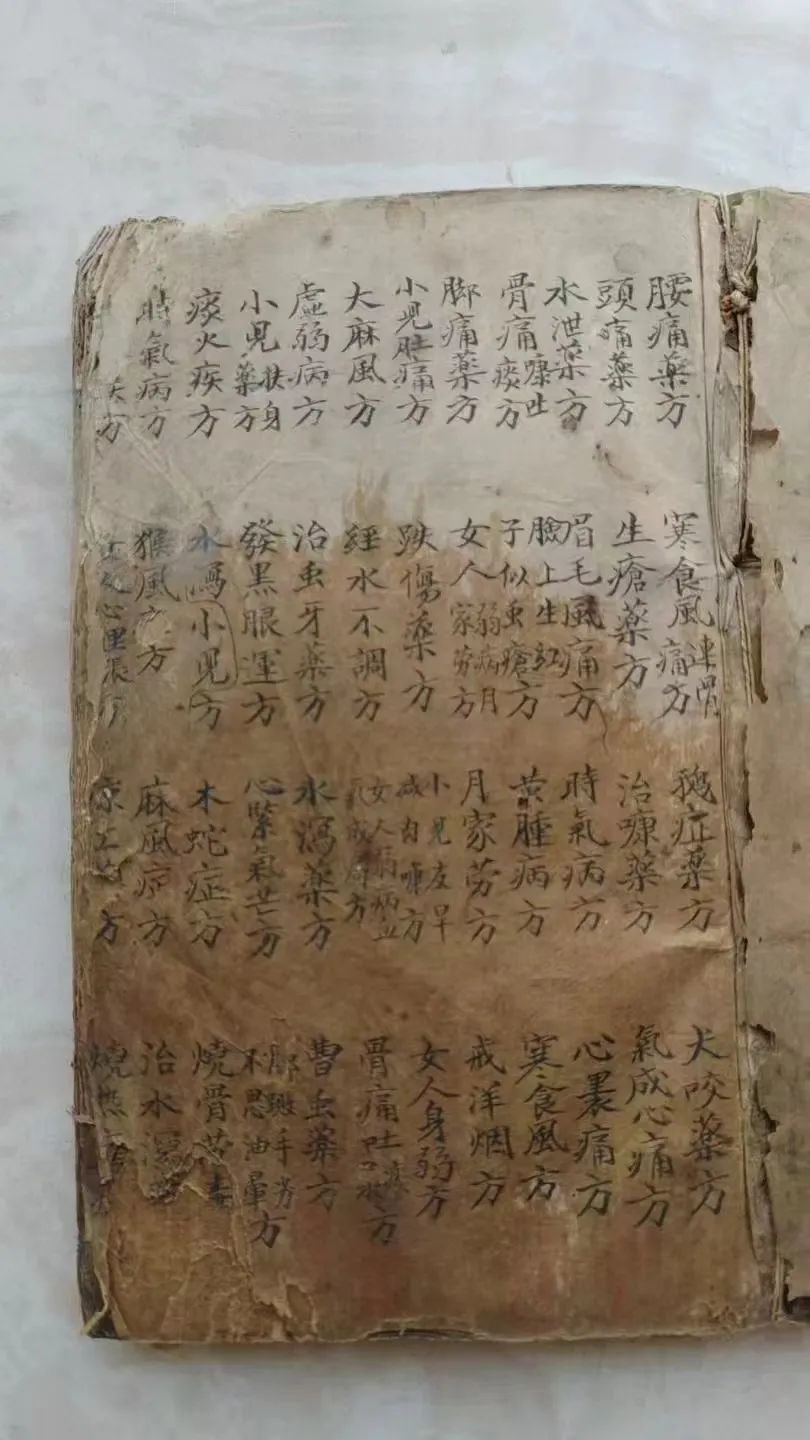 腰痛藥方
頭痛藥方
水泄藥方
骨痛㾾吐痰方
脚痛藥方
小児肚痛方
大麻風方
虚弱病方
小児扶身藥方
痰火疾方
時氣病方
方
寒食風連骨痛方
生瘡藥方
眉毛風痛方
臉上生紅
子似虫瘡方
女人弱病月家労方
跌傷藥方
經水不調方
治虫牙藥方
發黑眼運方
水瀉小児方
猴風方
女人心里
症藥方
治㾾藥方
時氣病方
黄腫病方
月家劳方
小児
成白方
女人病
氣成
方
水瀉藥方
心緊氣芒方
木蛇症方
麻風症方
方
犬咬藥方
氣成心痛方
心裹痛方
寒食風方
戒洋烟方
女人身弱方
骨痛吐痰口水方
曹虫藥方
脚班手劳
不思油暈方
燒骨
治水瀉
燒